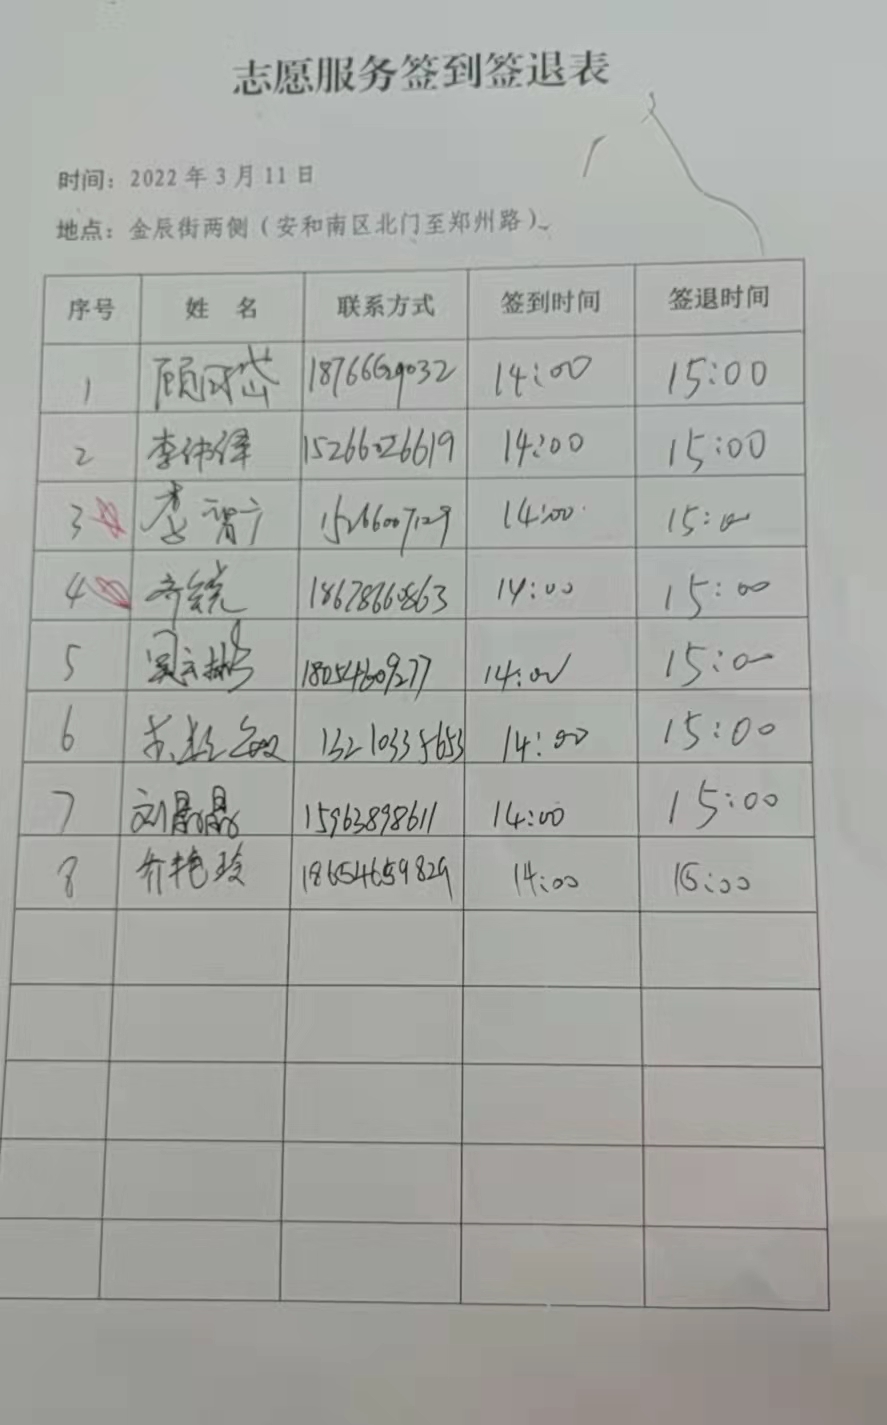 志愿服务签到签退表
时间：2022年3月11日
地点：金辰街两侧（安和南区北门至郑州路）
序号 姓 名 联系方式 签到时间 签退时间
1 14:00 15:00
2 李伟泽 15266026619 14:00 15:00
3 15266007129 14:00 15:00
4 18678660863 14:00 15:00
5 18054609277 14:00 15:00
6 13210335653 14:00 15:00
7 刘晶晶 15963898611 14:00 15:00
8 乔艳玲 18654659829 14:00 15:00